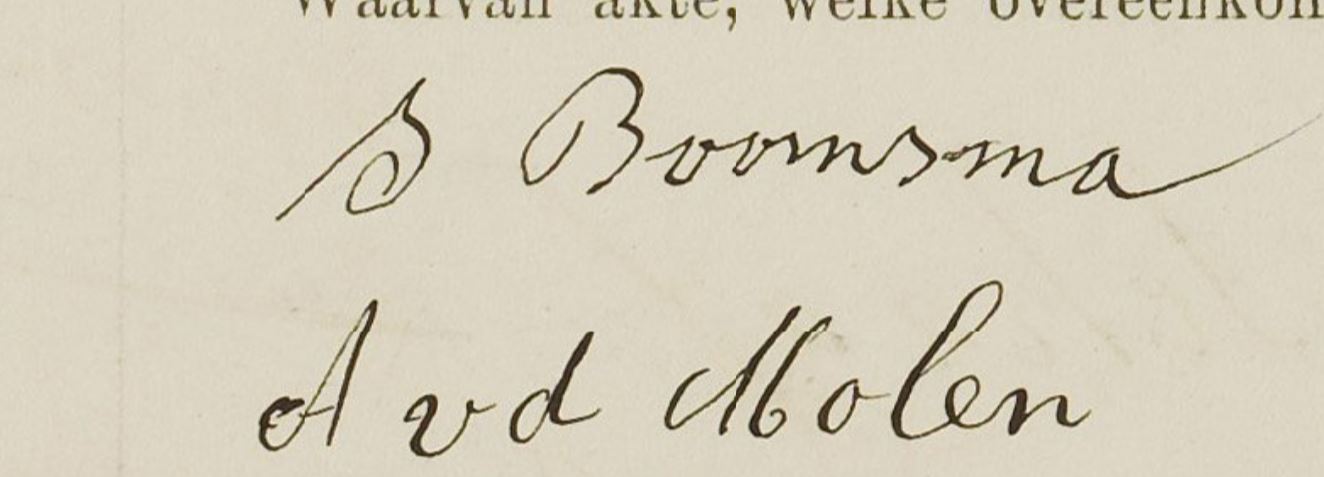 Waarvan akte, welke overeenkom
S Boomsma
A vd Molen